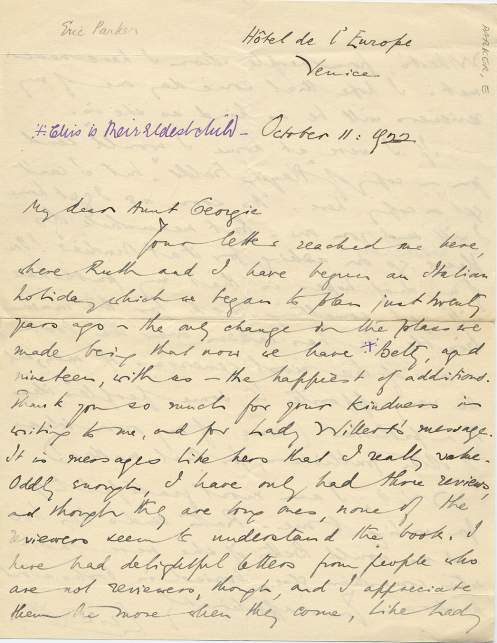 Eric Parker
PARKER, E
Hôtel de l'Europe
Venice
+ this is their eldest child - October 11: 1922
My dear Aunt Georgie
Your letter reached me here,
where Ruth and I have begun an Italian
holiday which we began to plan just twenty
years ago - the only change in the plans we
made being that now we have + Betty, aged
nineteen, with us - the happiest of additions.
Thank you so much for your kindness in
writing to me, and for Lady Willert's message.
It is messages like hers that I really value.
Oddly enough, I have only had three reviews,
and though they are long ones, none of the
reviewers seem to understand the book. I
have had delightful letters from people who
are not reviewers, though, and I appreciate
them the more when they come, like Lady